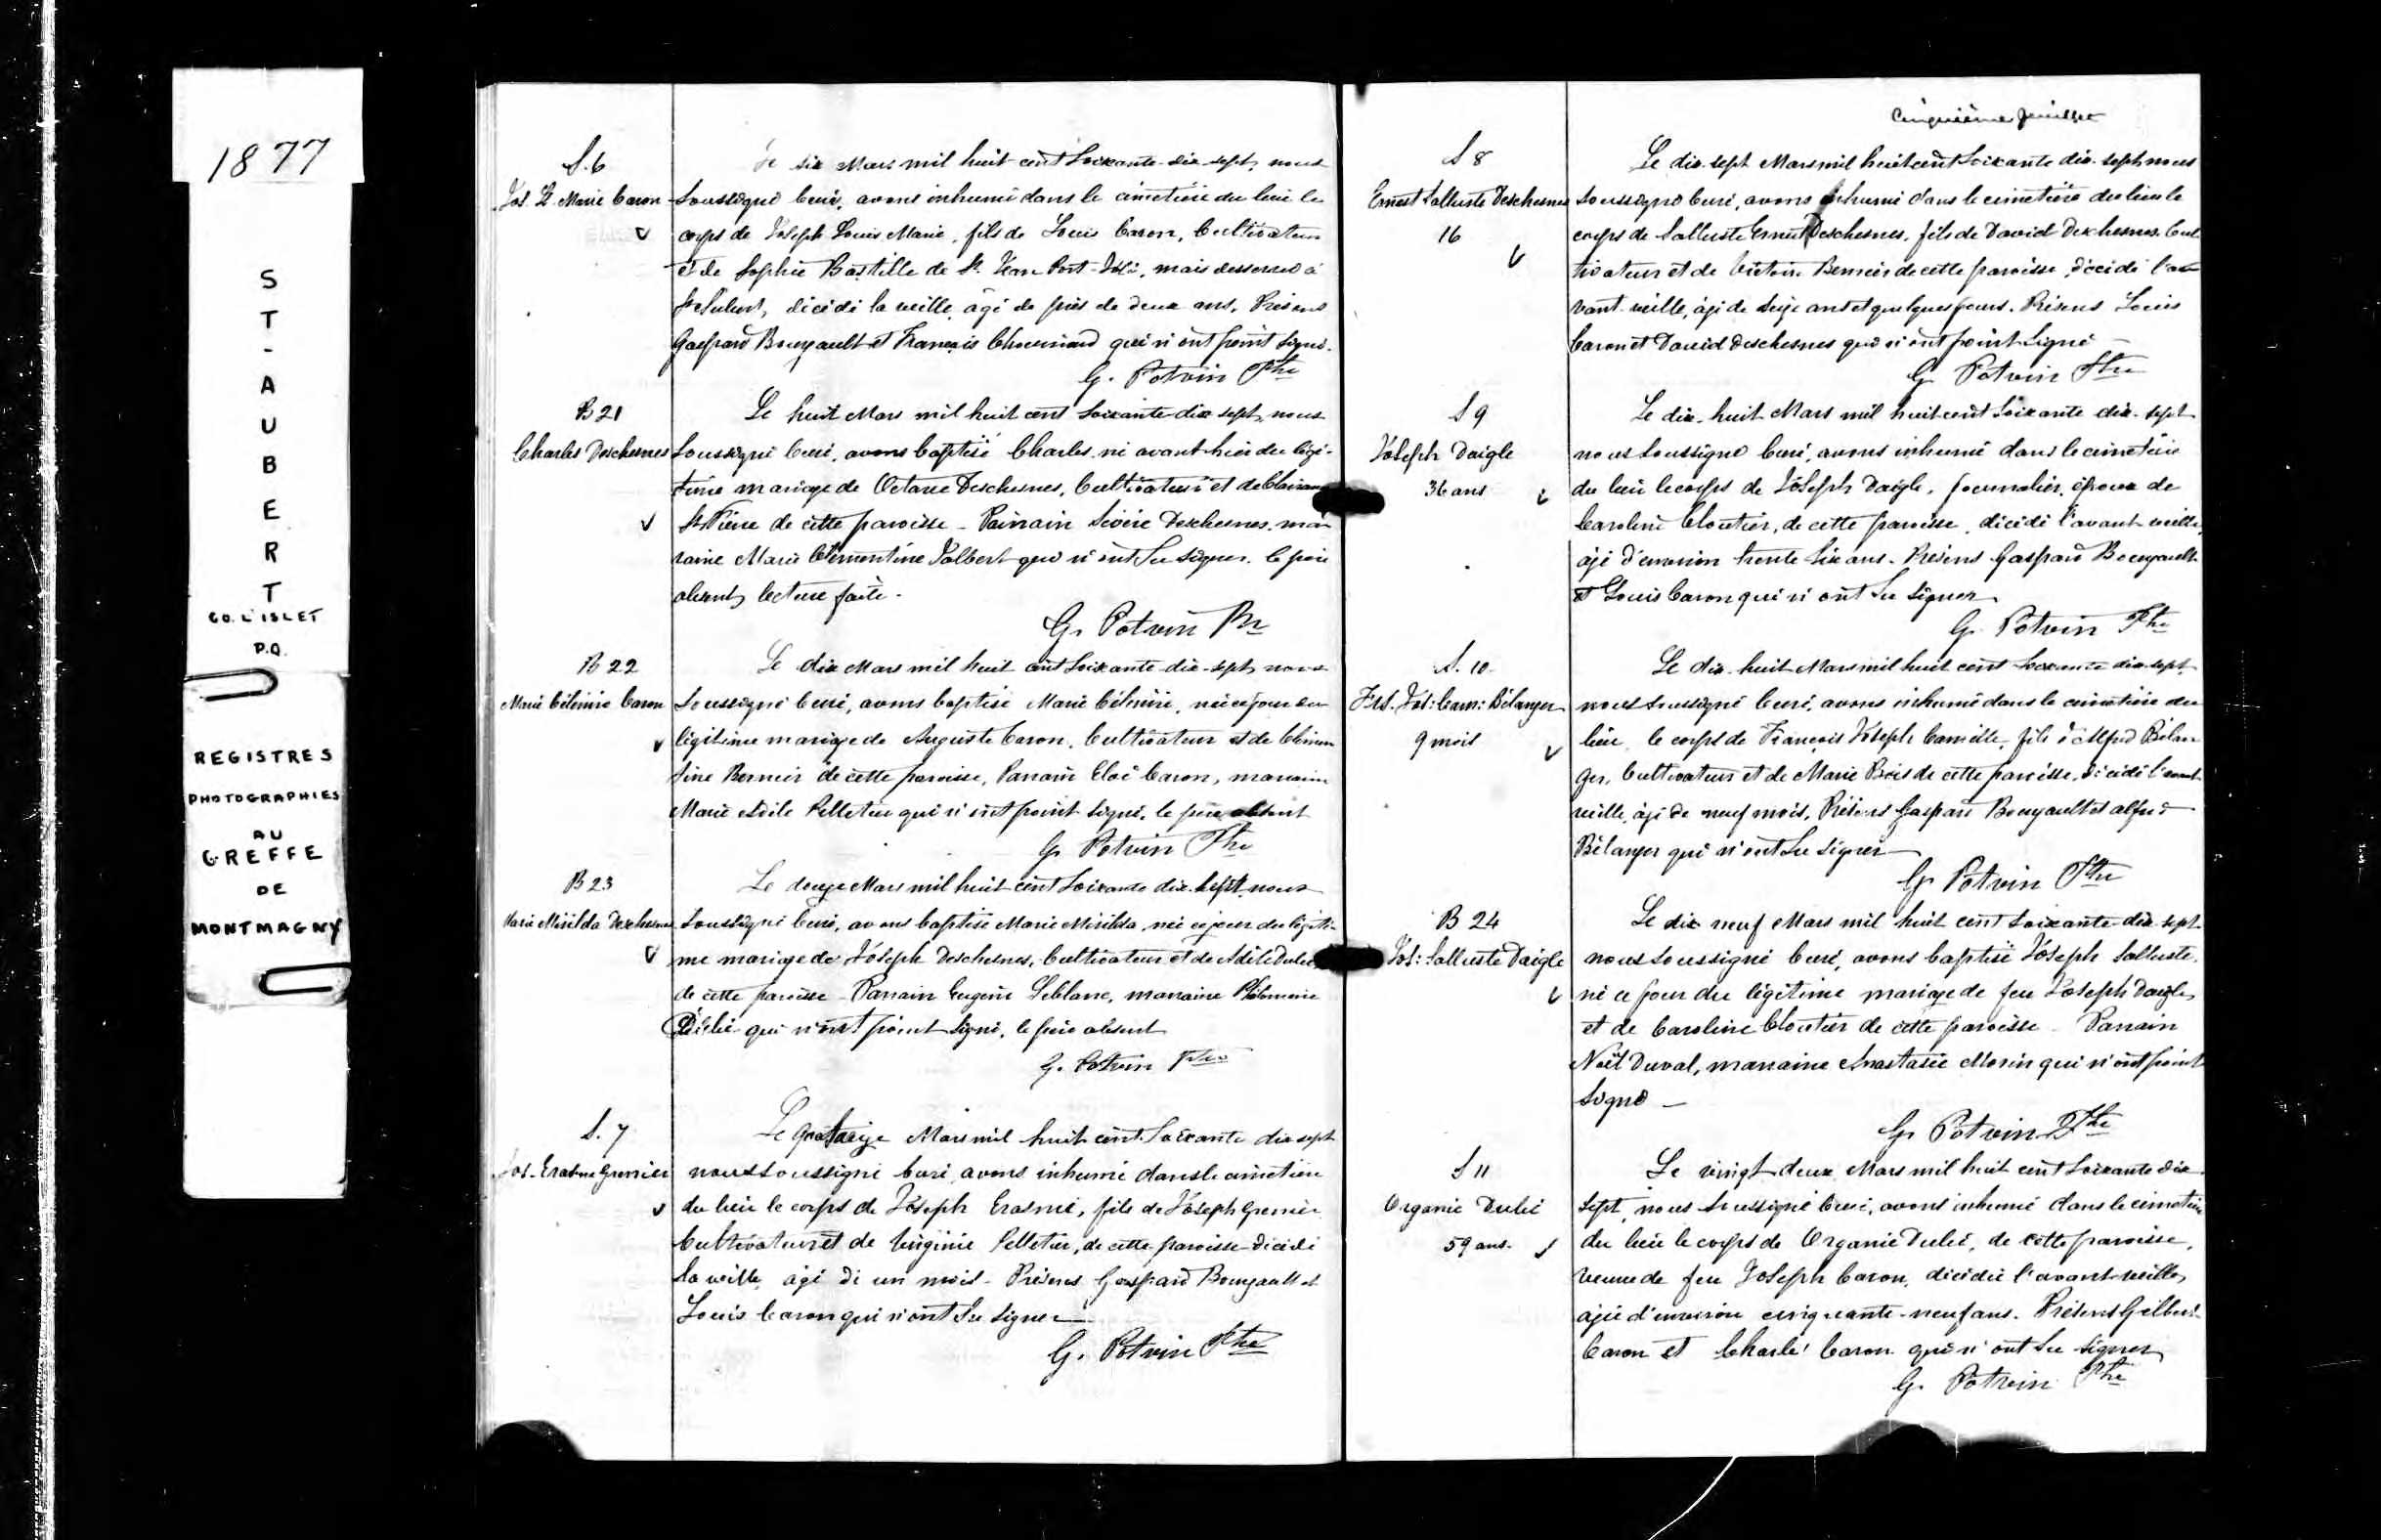 1877
ST-AUBERT
CO. L'ISLET
P.Q.
REGISTRES
PHOTOGRAPHIES
AU
GREFFE
DE
MONTMAGNY
S. 6
Jos. L. Marie Caron
Le six Mars mil huit cent soixante-dix-sept, nous
soussigné Curé, avons inhumé dans le cimetière du lieu le
corps de Joseph Louis Marie, fils de Louis Caron, Cultivateur
et de Sophie Bastille de St. Jean Port-Joli, mais desservi à
St Aubert, décédé la veille, âgé de près de deux ans. Présens
Gaspard Bourgault et François Chouinard qui n'ont point signé.
G. Potvin Ptre
B 21
Charles Deschesnes
Le huit Mars mil huit cent soixante-dix-sept, nous
soussigné Curé, avons baptisé Charles, né avant-hier du légi-
time mariage de Octave Deschesnes, Cultivateur et de
St. Pierre de cette paroisse - Parrain Sévère Deschesnes, mar
raine Marie Clémentine Jalbert qui n'ont su signer. le père
absent, lecture faite.
G. Potvin Ptr
B 22
Marie Célénire Caron
Le dix Mars mil huit cent soixante-dix-sept, nous
soussigné Curé, avons baptisé Marie Célénire, née ce jour du
légitime mariage de Auguste Caron, Cultivateur et de Clémen
tine Bernier de cette paroisse, Parrain Eloi Caron, marraine
Marie Adèle Pelletier qui n'ont point signé, le père absent
G. Potvin Ptre
B 23
Marie Mirilda Deschesnes
Le douze Mars mil huit cent soixante dix-sept, nous
soussigné Curé, avons baptisé Marie Mirilda, née ce jour du légiti-
me mariage de Joseph Deschesnes, Cultivateur et de Adèle Dubé,
de cette paroisse - Parrain Eugène Leblanc, marraine Philomène
qui n'ont point signé, le père absent
G. Potvin Ptre
S. 7
Jos. Erasme Grenier
Le quatorze Mars mil huit cent soixante dix sept
nous soussigné Curé, avons inhumé dans le cimetière
du lieu le corps de Joseph Erasme, fils de Joseph Grenier
Cultivateur et de Virginie Pelletier, de cette paroisse - décédé
la veille, âgé de un mois - Présens Gaspard Bourgault et
Louis Caron qui n'ont su signer
G. Potvin Ptre
Cinquième feuillet
S 8
Ernest Salluste Deschesnes
16
Le dix-sept Mars mil huit cent soixante dix-sept nous
soussigné Curé, avons inhumé dans le cimetière du lieu le
corps de Salluste Ernest Deschesnes, fils de David Deschesnes, Cul
tivateur et de Victoire Bernier de cette paroisse, décédé l'a
vant-veille, âgé de seize ans et quelques jours. Présens Louis
Caron et David Deschesnes qui n'ont point signé -
G Potvin Ptre
S 9
Joseph Daigle
36 ans
Le dix-huit Mars mil huit cent soixante dix-sept
nous soussigné Curé, avons inhumé dans le cimetière
du lieu le corps de Joseph Daigle, journalier, époux de
Caroline Cloutier, de cette paroisse, décédé l'avant veille,
âgé d'environ trente six ans. Présens Gaspard Bourgault
et Louis Caron qui n'ont su signer
G. Potvin Ptre
S. 10.
Frs. Jos: Cam: Bélanger
9 mois
Le dix-huit Mars mil huit cent soixante dix-sept,
nous soussigné Curé, avons inhumé dans le cimetière du
lieu, le corps de François Joseph Camille, fils d'Alfred Bélan
ger, Cultivateur et de Marie Bois de cette paroisse, décédé l'avant
veille, âgé de neuf mois, Présens Gaspard Bourgault et Alfred
Bélanger qui n'ont su signer
G Potvin Ptre
B 24
Jos: Salluste Daigle
Le dix neuf Mars mil huit cent soixante-dix-sept
nous soussigné Curé, avons baptisé Joseph Salluste,
né ce jour du légitime mariage de feu Joseph Daigle,
et de Caroline Cloutier de cette paroisse - Parrain
Noël Duval, marraine Anastasie Morin qui n'ont point
signé -
G. Potvin Ptre
S 11
Organie Dubé
59 ans.
Le vingt-deux Mars mil huit cent soixante dix-
sept, nous soussigné Curé, avons inhumé dans le cimetière
du lieu le corps de Organie Dubé, de cette paroisse,
veuve de feu Joseph Caron, décédée l'avant-veille,
âgée d'environ cinquante-neuf ans. Présens Gilbert
Caron et Charles Caron qui n'ont su signer
G. Potvin Ptre